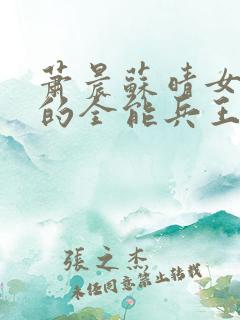 蕭晨蘇晴女
的全能兵王
張之杰
未任同意禁止转载